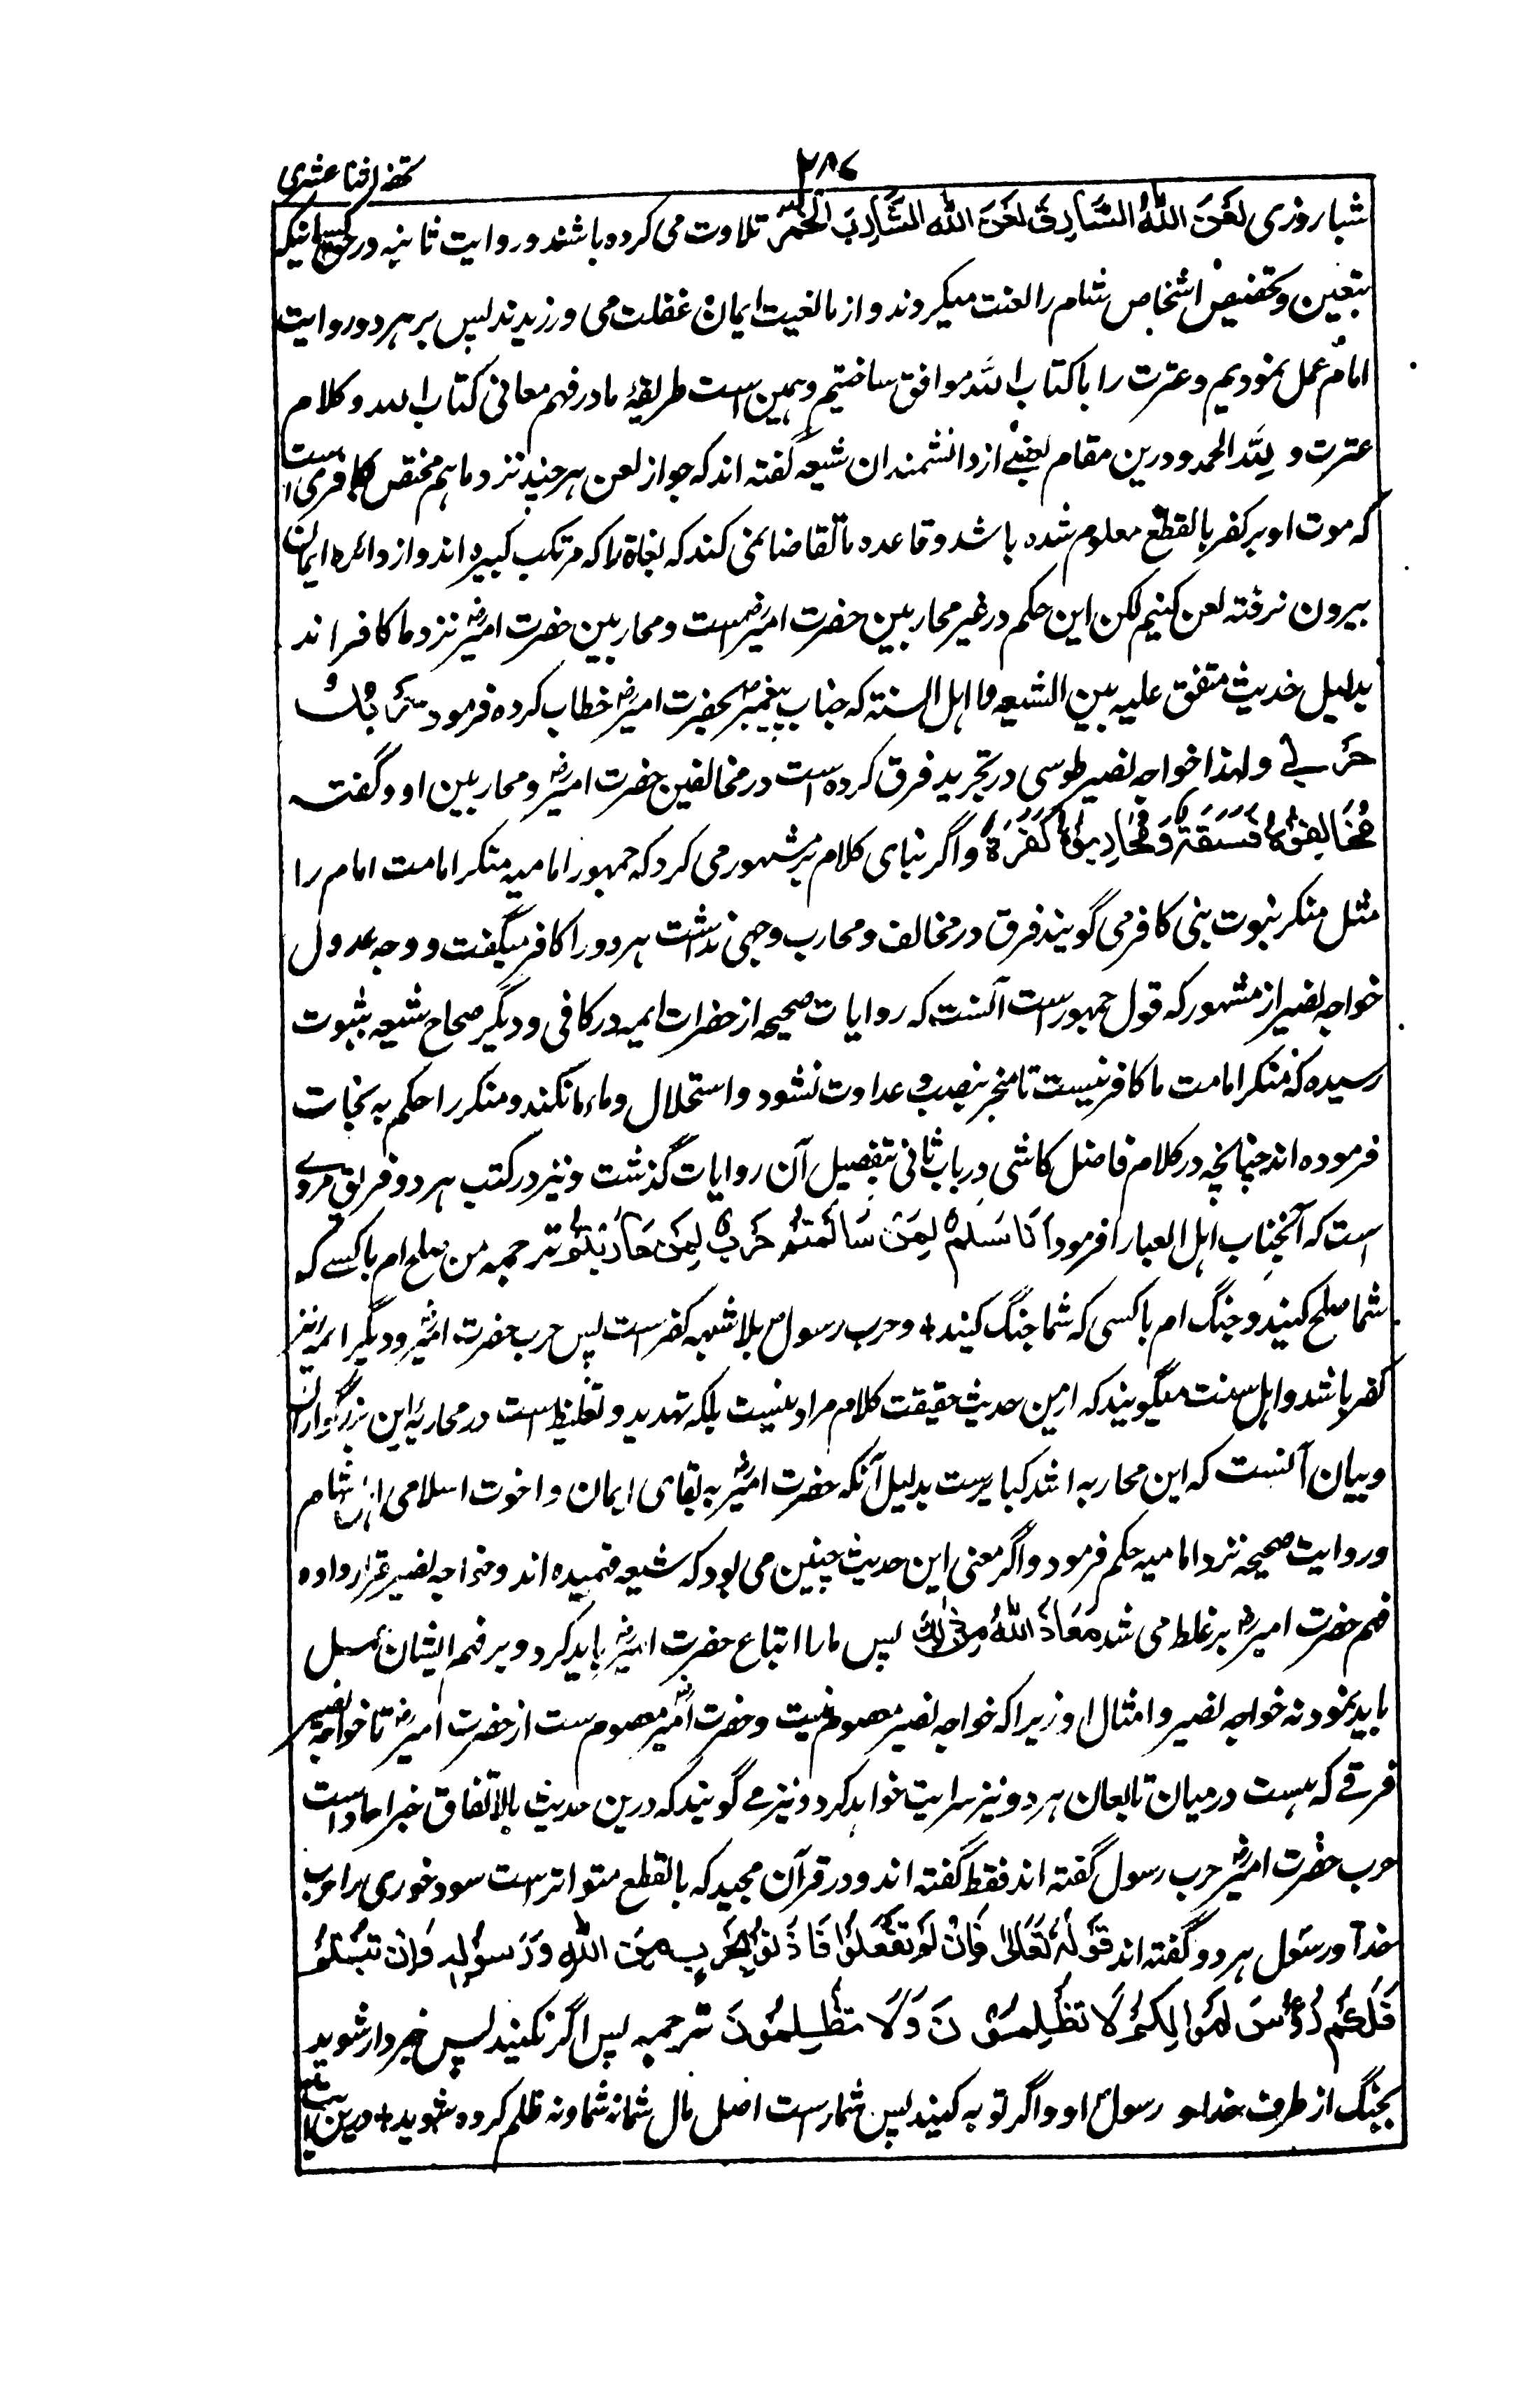 ۲۸۷
تحفه اثنا عشری
شباروزی لَعَنَ اللّٰهُ السَّارِقَ لَعَنَ اللّٰهُ الشَّارِبَ الْخَمْرَ تلاوت می کرده باشند و روایت ثانیه در حق کسانیکه
بتعین و تخصیص اشخاص شام را لعنت میکردند و از مانعیت ایمان غفلت می ورزیدند پس بر هر دو روایت
امام عمل نمودیم و عترت را با کتاب الله موافق ساختیم و همین است طریقهٔ ما در فهم معانی کتاب الله و کلام
عترت و لِلّٰه الحمد و درین مقام بعضے از دانشمندان شیعه گفته اند که جواز لعن هر چند نزد ما هم مختص بکافری است
که موت او بر کفر بالقطع معلوم شده باشد و قاعده ما تقاضا نمی کند که بغاة را که مرتکب کبیره اند و از دائره ایمان
بیرون نرفته لعن کنیم لکن این حکم در غیر محاربین حضرت امیرؓ است و محاربین حضرت امیرؓ نزد ما کافر اند
بدلیل حدیث متفق علیه بین الشیعه و اهل السنته که جناب پیغمبرؐ بحضرت امیرؓ خطاب کرده فرمود حَرْبُكَ
حَرْبِیْ و لهذا خواجه نصیر طوسی در تجرید فرق کرده است در مخالفین حضرت امیرؓ و محاربین او و گفت
مُخَالِفُوْهُ فَسَقَةٌ وَ مُحَارِبُوْهُ كَفَرَةٌ و اگر بنای کلام بر مشهور می کرد که جمهور امامیه منکر امامت امام را
مثل منکر نبوت نبی کافر می گویند فرق در مخالف و محارب وجهی نداشت هر دو را کافر میگفت و وجه عدول
خواجه نصیر از مشهور که قول جمهور است آنست که روایات صحیحه از حضرات ایمه در کافی و دیگر صحاح شیعه بثبوت
رسیده که منکر امامت ما کافر نیست تا منجر بنصب و عداوت نشود و استحلال دماء ما نکند و منکر را حکم به نجات
فرموده اند چنانچه در کلام فاضل کاشی در باب ثانی بتفصیل آن روایات گذشت و نیز در کتب هر دو فریق مروی
است که آنجناب اهل العبا را فرمود اَنَا سَلْمٌ لِمَنْ سَالَمْتُمْ حَرْبٌ لِمَنْ حَارَبْتُمْ ترجمه من صلح ام با کسے که
شما صلح کنید و جنگ ام با کسی که شما جنگ کنید + و حرب رسولؐ بلا شبهه کفر است پس حرب حضرت امیرؓ و دیگر ایمه نیز
کفر باشد و اهل سنت میگویند که ازین حدیث حقیقت کلام مراد نیست بلکه تهدید و تغلیظ است در محاربهٔ این بزرگواران
و بیان آنست که این محاربه اشد کبایرست بدلیل آنکه حضرت امیرؓ به بقای ایمان و اخوت اسلامی اهل شام
در روایت صحیحه نزد امامیه حکم فرمود و اگر معنی این حدیث چنین می بود که شیعه فهمیده اند و خواجه نصیر قرار داده
فهم حضرت امیرؓ بر غلط می شد مَعَاذَ اللّٰهِ مِنْ ذٰلِكَ پس ما را اتباع حضرت امیرؓ باید کرد و بر فهم ایشان عمل
باید نمود نه خواجه نصیر و امثال او زیرا که خواجه نصیر معصوم نیست و حضرت امیرؓ معصوم ست از حضرت امیرؓ تا خواجه نصیر
فرقے که هست در میان تابعان هر دو نیز سرایت خواهد کرد و نیز مے گویند که درین حدیث بالاتفاق خبر احاد است
حرب حضرت امیرؓ حرب رسول گفته اند فقط گفته اند و در قرآن مجید که بالقطع متواتر است سود خوری را حرب
خدا و رسول هر دو گفته اند قَوْلُهُ تَعَالٰی فَاِنْ لَمْ تَفْعَلُوْا فَاْذَنُوْا بِحَرْبٍ مِنَ اللّٰهِ وَ رَسُوْلِهٖ وَ اِنْ تُبْتُمْ
فَلَكُمْ رُءُوْسُ اَمْوَالِكُمْ لَا تَظْلِمُوْنَ وَ لَا تُظْلَمُوْنَ ترجمه پس اگر نکنید پس خبردار شوید
بجنگ از طرف خدا و رسول او و اگر توبه کنید پس شماراست اصل مال شما نه شما و نه ظلم کرده شوید + درین